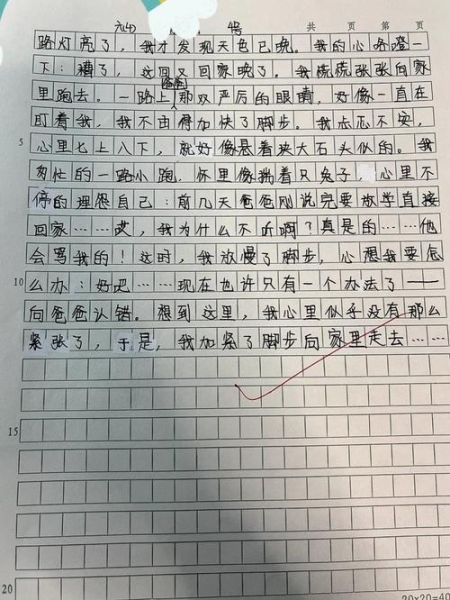 六(4) 号 共 页 第 页
路灯亮了，我才发现天色已晚。我的心咯噔一
下：糟了，这回又回家晚了。我慌慌张张向家
里跑去。一路上爸爸那双严厉的眼睛，好像一直在
盯着我，我不由得加快了脚步。我忐忑不安，
5 心里七上八下，就好像悬着块大石头似的。我
匆忙的一路小跑，怀里像揣着只兔子，心里不
停的埋怨自己：前几天爸爸刚说完要放学直接
回家……哎，我为什么不听啊？真是的……他
会骂我的！这时，我放慢了脚步，心想我要怎
10 么办：好吧……现在也许只有一个办法了——
向爸爸认错。想到这里，我心里似乎没有那么
紧张了，于是，我加紧了脚步向家里走去……
15
20
20×20=40